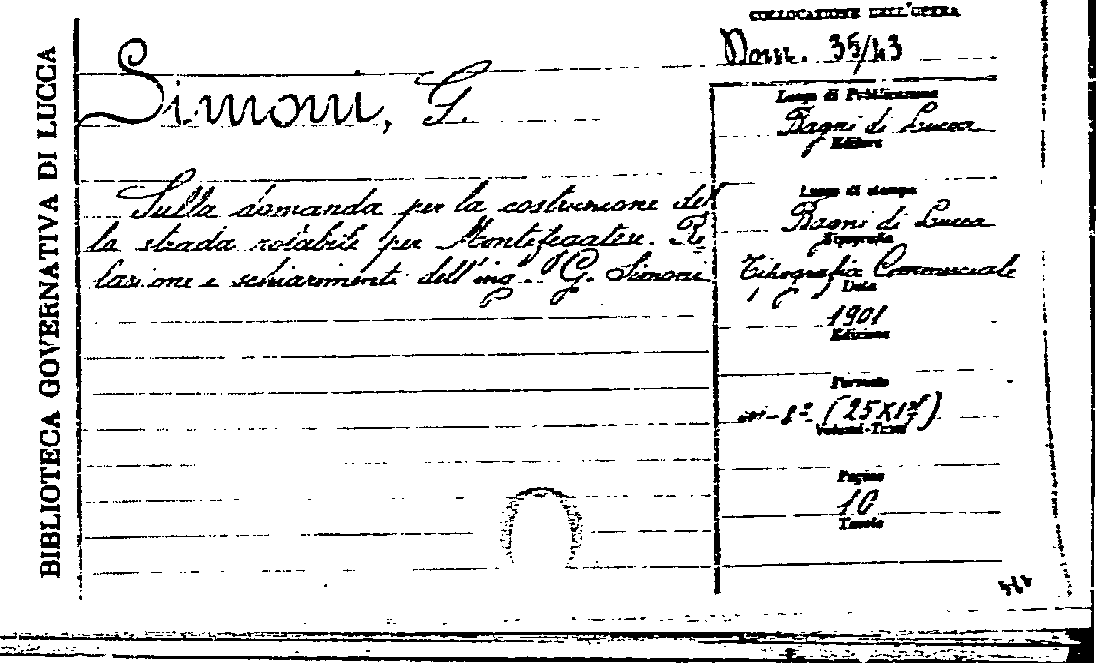 BIBLIOTECA GOVERNATIVA DI LUCCA
COLLOCAZIONE DELL'OPERA
35/43
Simoni, G.
Sulla domanda per la costruzione del
la strada rotabile per Montefegatesi. Re
lazione e schiarimenti dell'ing. G. Simoni
Luogo di Pubblicazione
Bagni di Lucca
Editore
Luogo di stampa
Bagni di Lucca
Tipografia
Tipografia Commerciale
Data
1901
Edizione
Formato
in-8º (25x17)
Volumi-Tomi
Pagine
10
Tavole